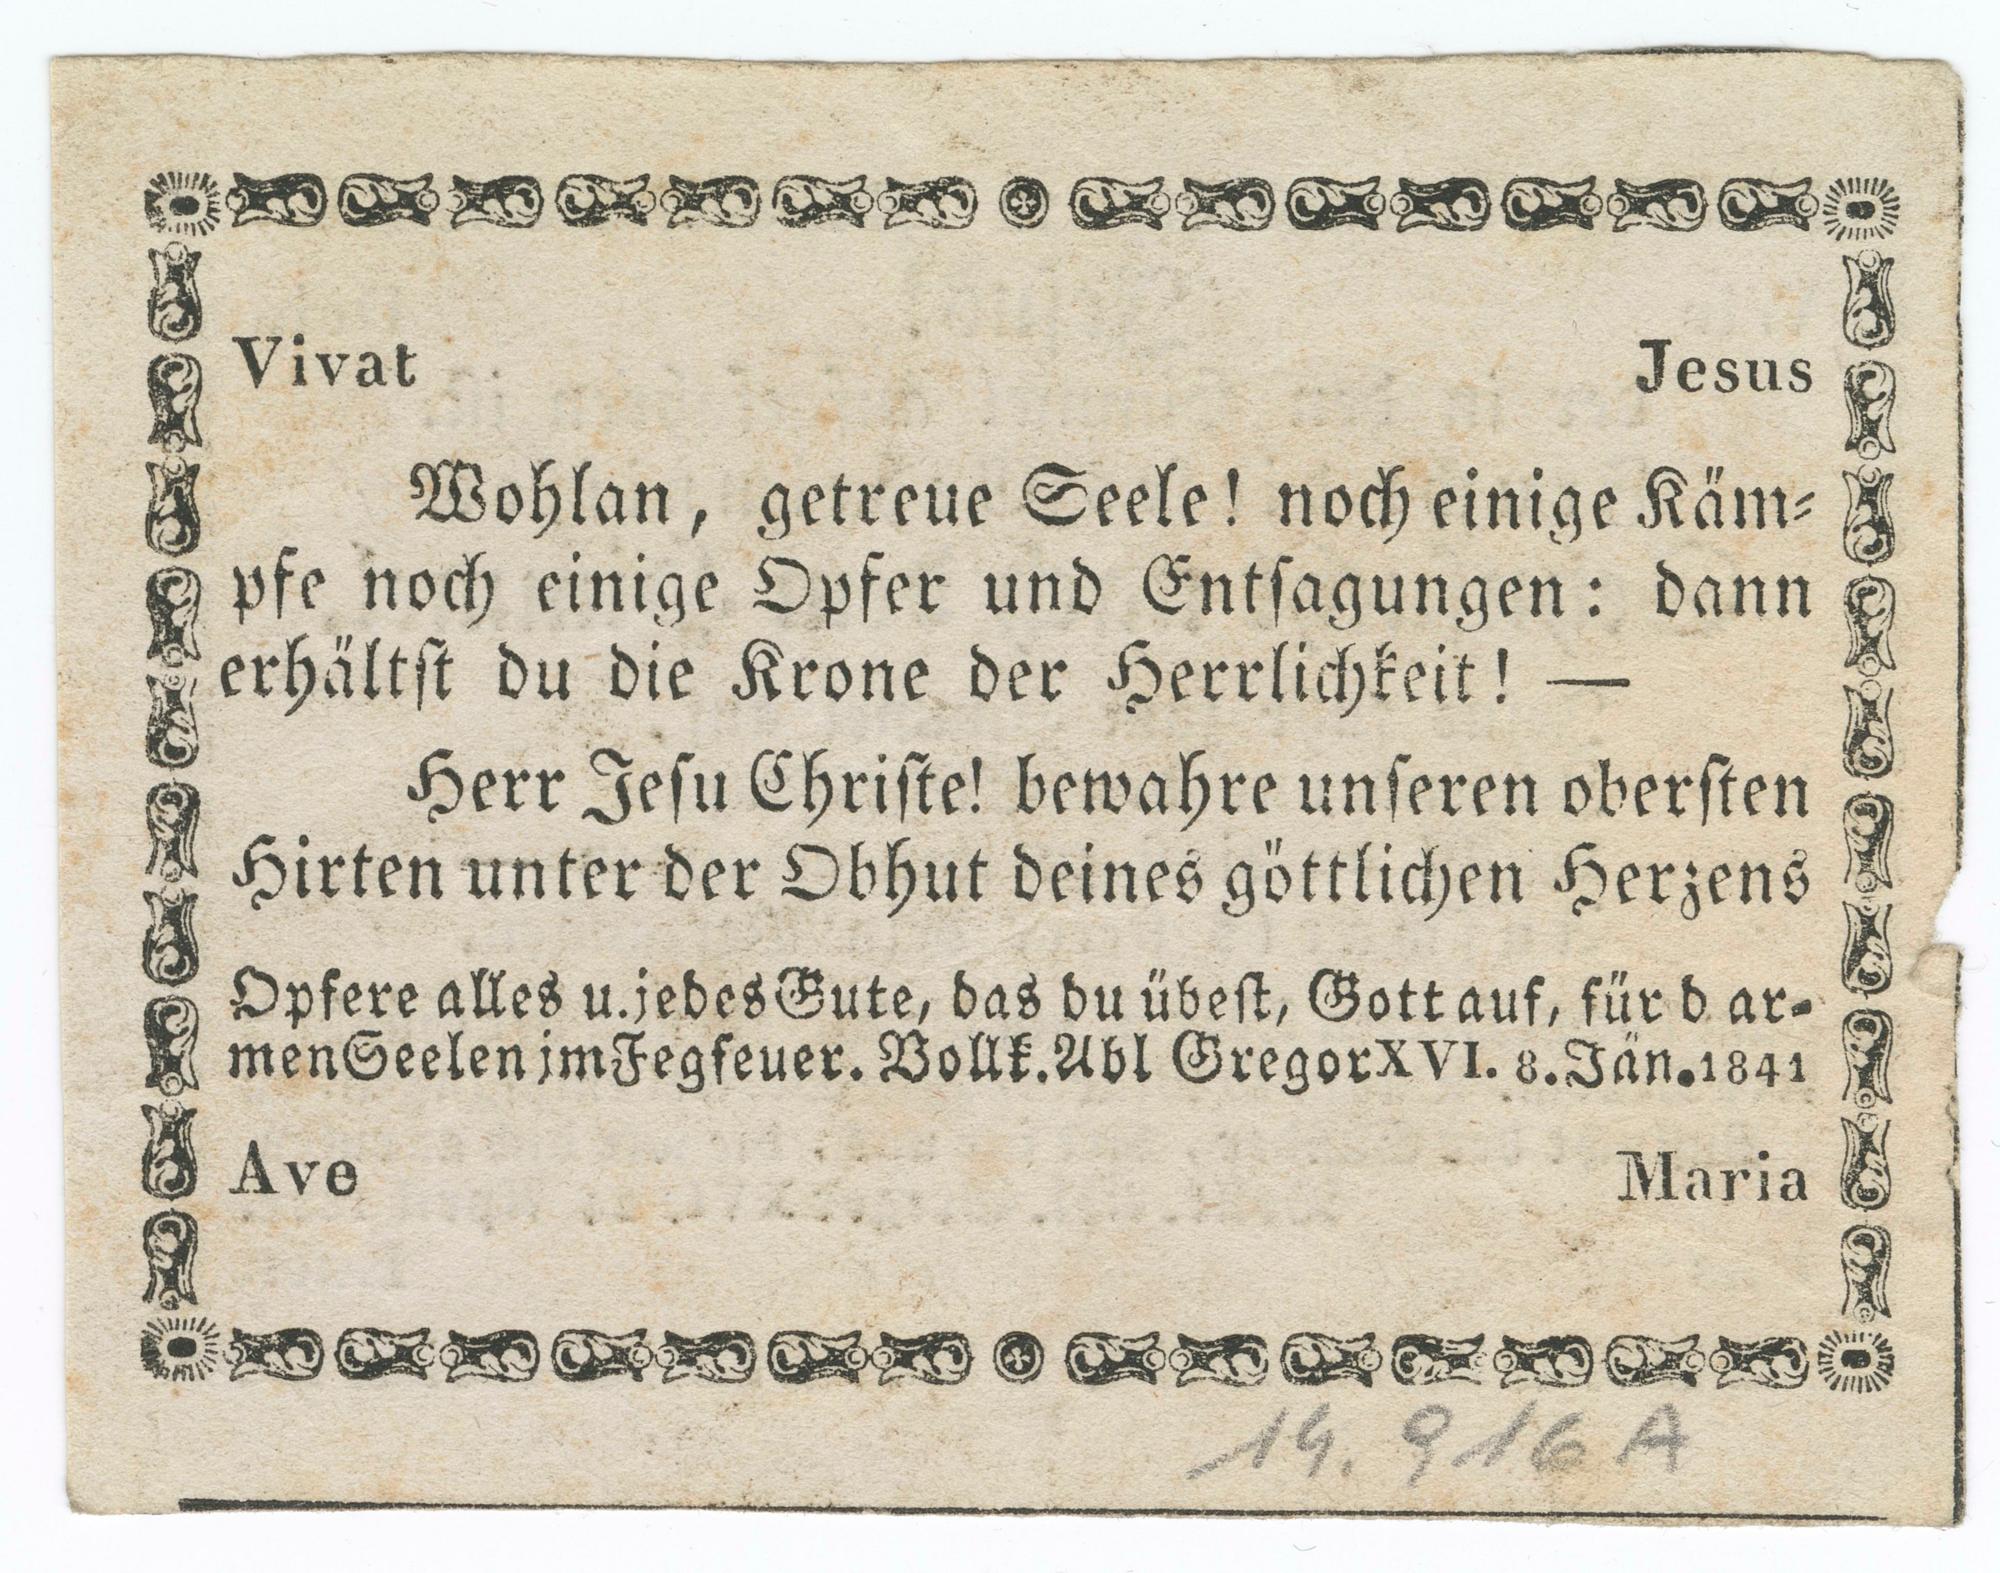 Vivat Jesus
Wohlan, getreue Seele! noch einige Käm-
pfe noch einige Opfer und Entsagungen: dann
erhältst du die Krone der Herrlichkeit! —
Herr Jesu Christe! bewahre unseren obersten
Hirten unter der Obhut deines göttlichen Herzens
Opfere alles u. jedes Gute, das du übest, Gott auf, für d ar-
men Seelen im Fegfeuer. Vollk. Abl Gregor XVI. 8. Jän. 1841
Ave Maria
14.916 A